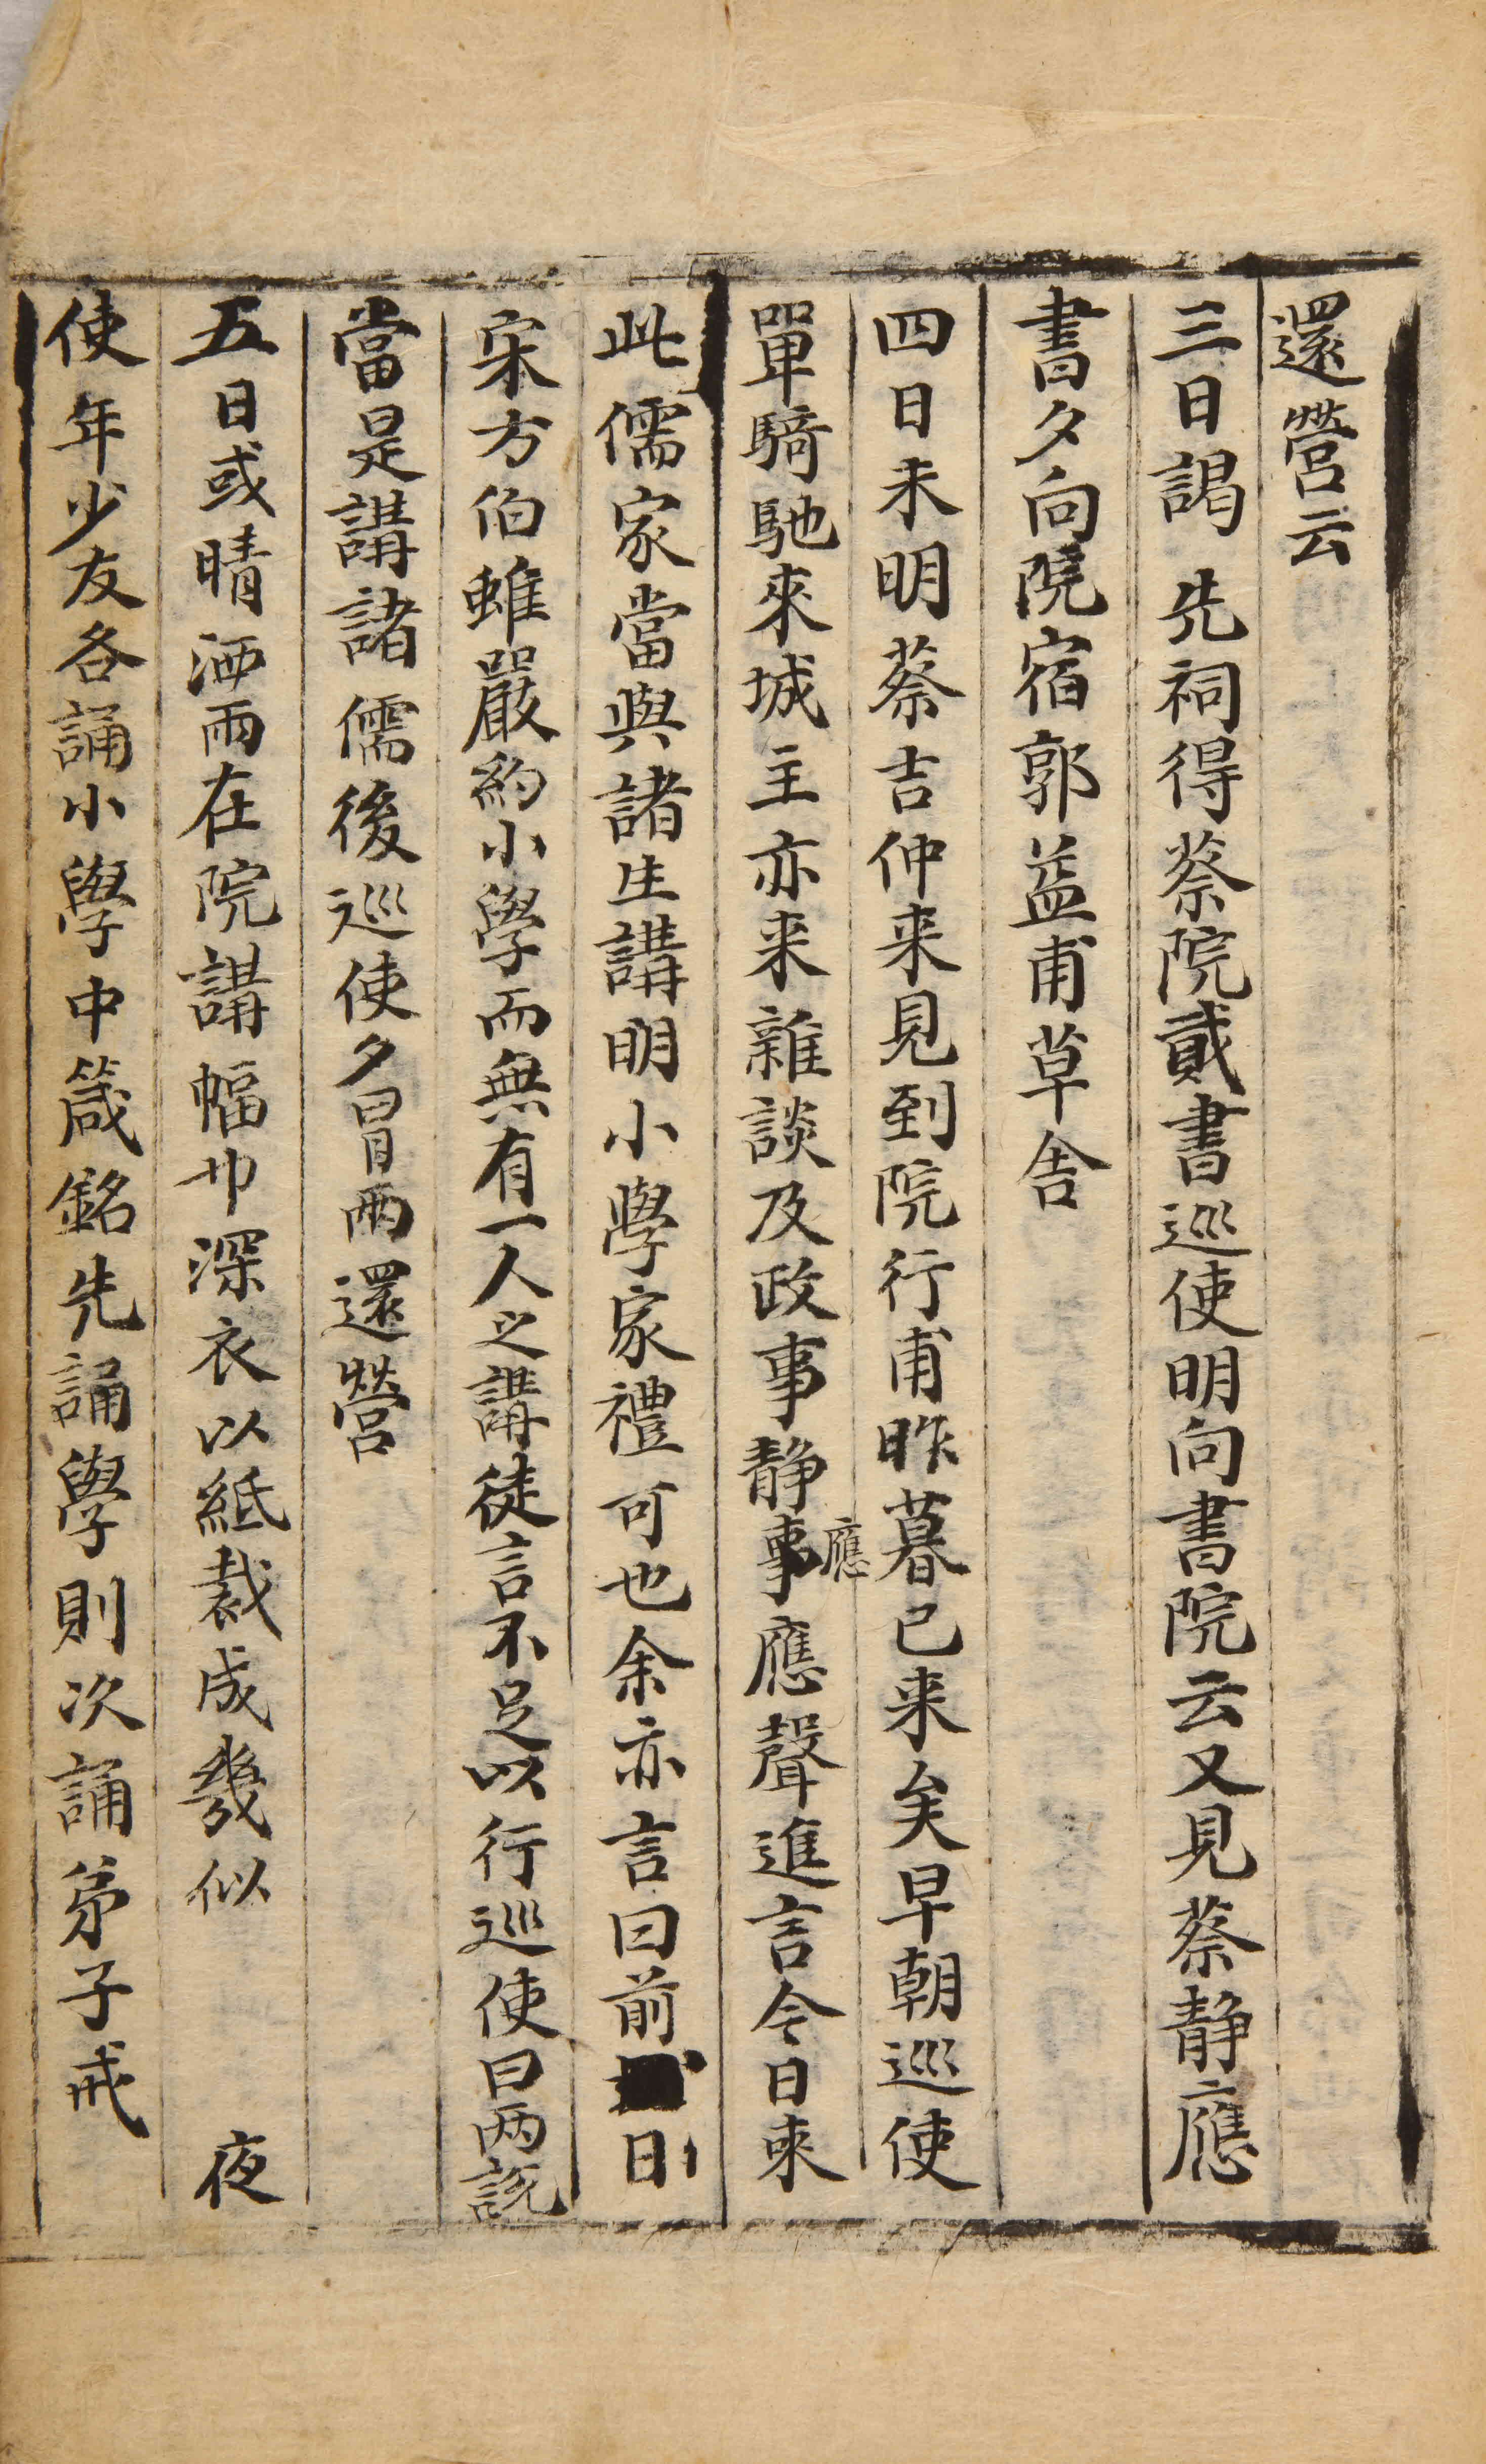 還營云
三日謁 先祠得蔡院貳書巡使明向書院云又見蔡靜應
書夕向院宿郭益甫草舍
四日未明蔡吉仲来見到院行甫昨暮已来矣早朝巡使
單騎馳來城主亦来雜談及政事靜事應應聲進言今日來
此儒家當與諸生講明小學家禮可也余亦言曰前日
宋方伯雖嚴約小學而無有一人之講徒言不足以行巡使曰兩説
當是講諸儒後巡使夕冒雨還營
五日或晴洒雨在院講幅巾深衣以紙裁成幾似 夜
使年少友各誦小學中箴銘先誦學則次誦弟子戒